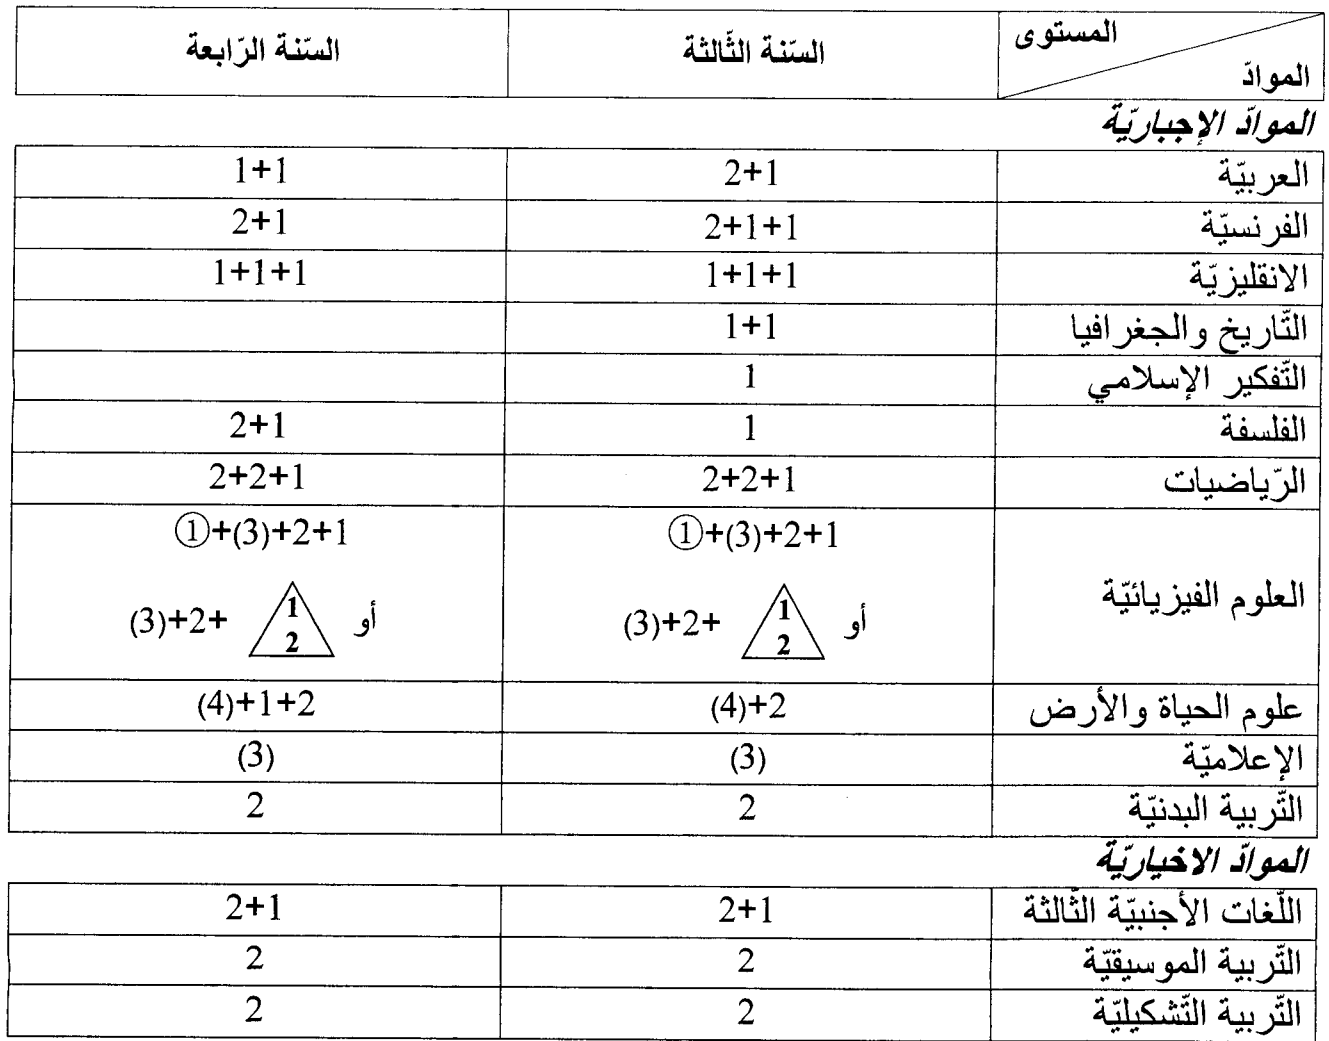 المستوى
الموادّ
السّنة الثّالثة
السّنة الرّابعة
الموادّ الإجباريّة
العربيّة 2+1 1+1
الفرنسيّة 2+1+1 2+1
الانقليزيّة 1+1+1 1+1+1
التّاريخ والجغرافيا 1+1
التّفكير الإسلامي 1
الفلسفة 1 2+1
الرّياضيات 2+2+1 2+2+1
①+(3)+2+1 ①+(3)+2+1
العلوم الفيزيائيّة
أو 1 2 +2+(3) أو 1 2 +2+(3)
علوم الحياة والأرض (4)+2 (4)+1+2
الإعلاميّة (3) (3)
التّربية البدنيّة 2 2
الموادّ الاخياريّة
اللّغات الأجنبيّة الثّالثة 2+1 2+1
التّربية الموسيقيّة 2 2
التّربية التّشكيليّة 2 2